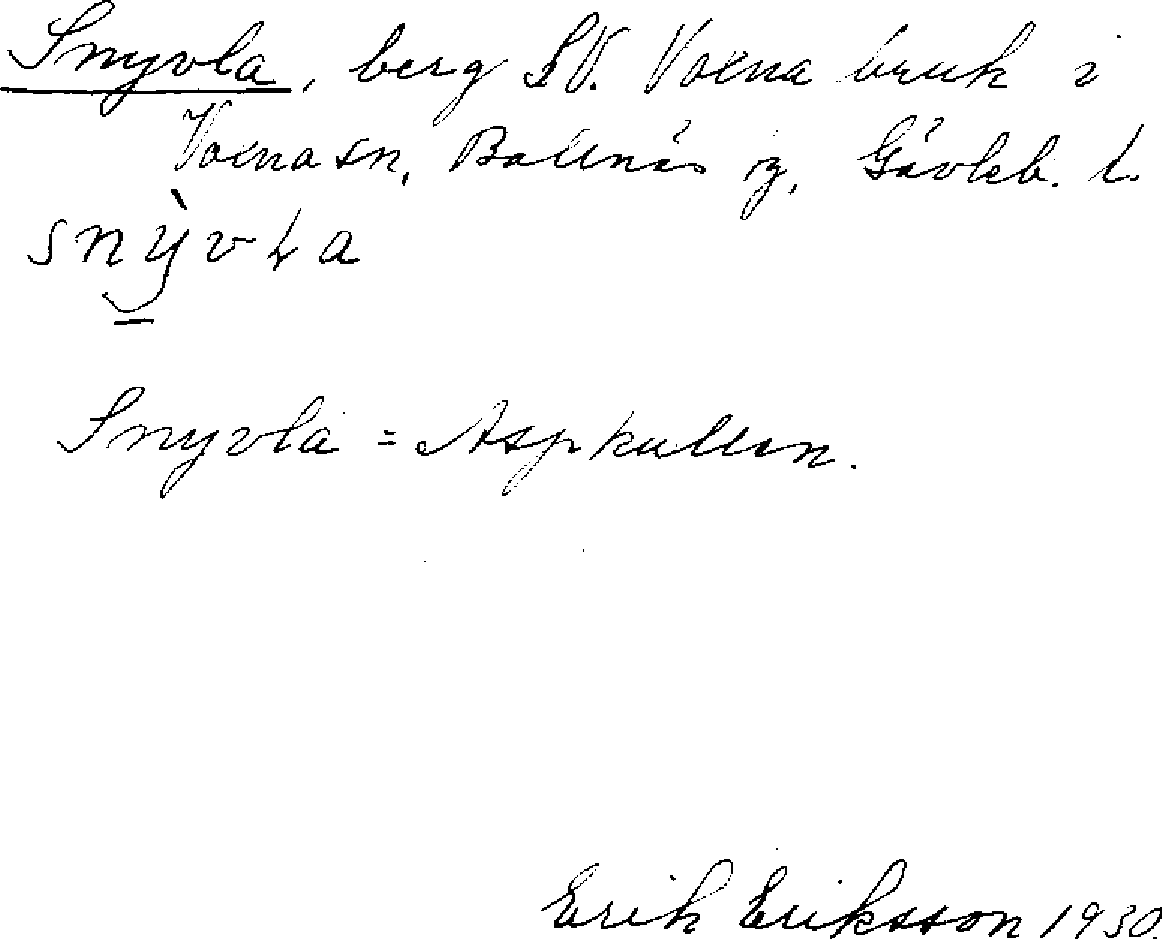 Snyvla, berg SV. Voxna bruk i
Voxna sn, Bollnäs tg, Gävleb. l.
snỳvḷa
Snyvla = Aspkullen.
Erik Eriksson 1930.